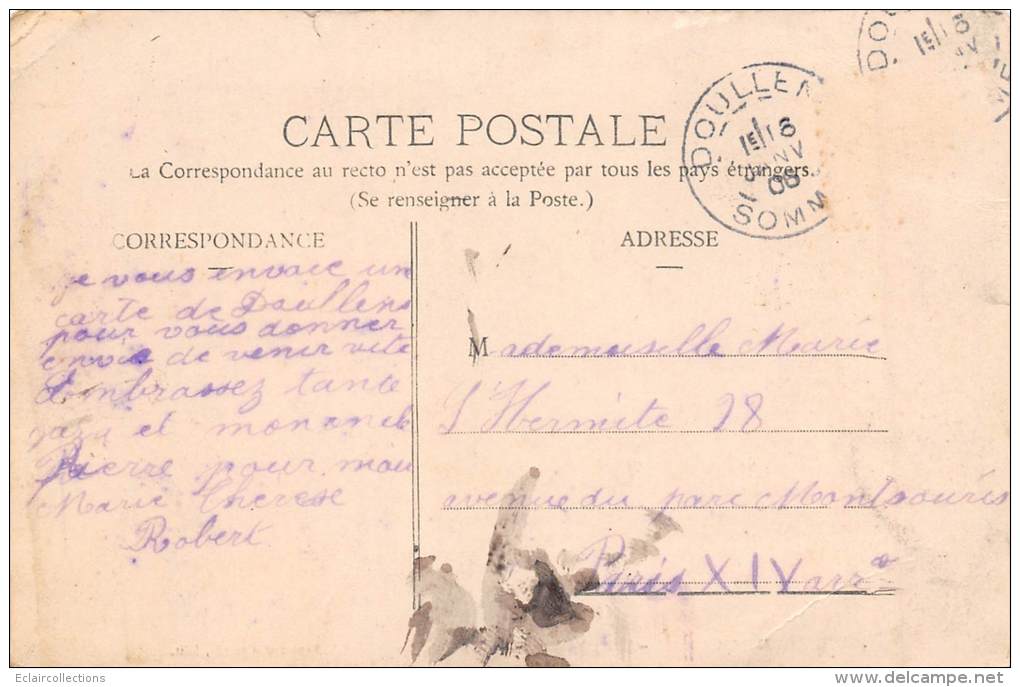 CARTE POSTALE
La Correspondance au recto n'est pas acceptée par tous les pays étrangers.
(Se renseigner à la Poste.)
CORRESPONDANCE
je vous envoie un
carte de Doullens
pour vous donner
envie de venir vite
Embrassez tante
et mon oncle
Pierre pour moi
Marie Therese
Robert
ADRESSE
Mademoiselle Marie
L'Hermite 28
avenue du parc Montsouris
Paris XIV arr
DOULLEN
1E/16
JANV
06
SOMM
DOU
1E/16
Eclaircollections
www.delcampe.net